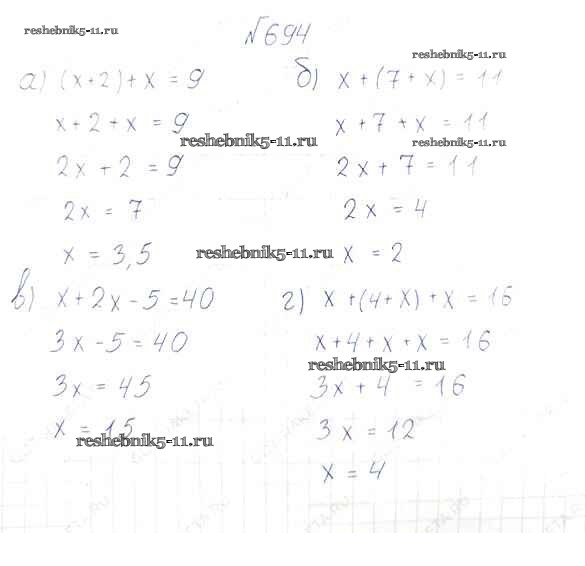 reshebnik5-11.ru
№694
reshebnik5-11.ru
а) (x+2)+x=9
x+2+x=9
reshebnik5-11.ru
2x+2=9
2x=7
x=3,5
reshebnik5-11.ru
б) x+(7+x)=11
x+7+x=11
reshebnik5-11.ru
2x+7=11
2x=4
x=2
в) x+2x-5=40
3x-5=40
3x=45
x=15
reshebnik5-11.ru
г) x+(4+x)+x=16
x+4+x+x=16
reshebnik5-11.ru
3x+4=16
3x=12
x=4